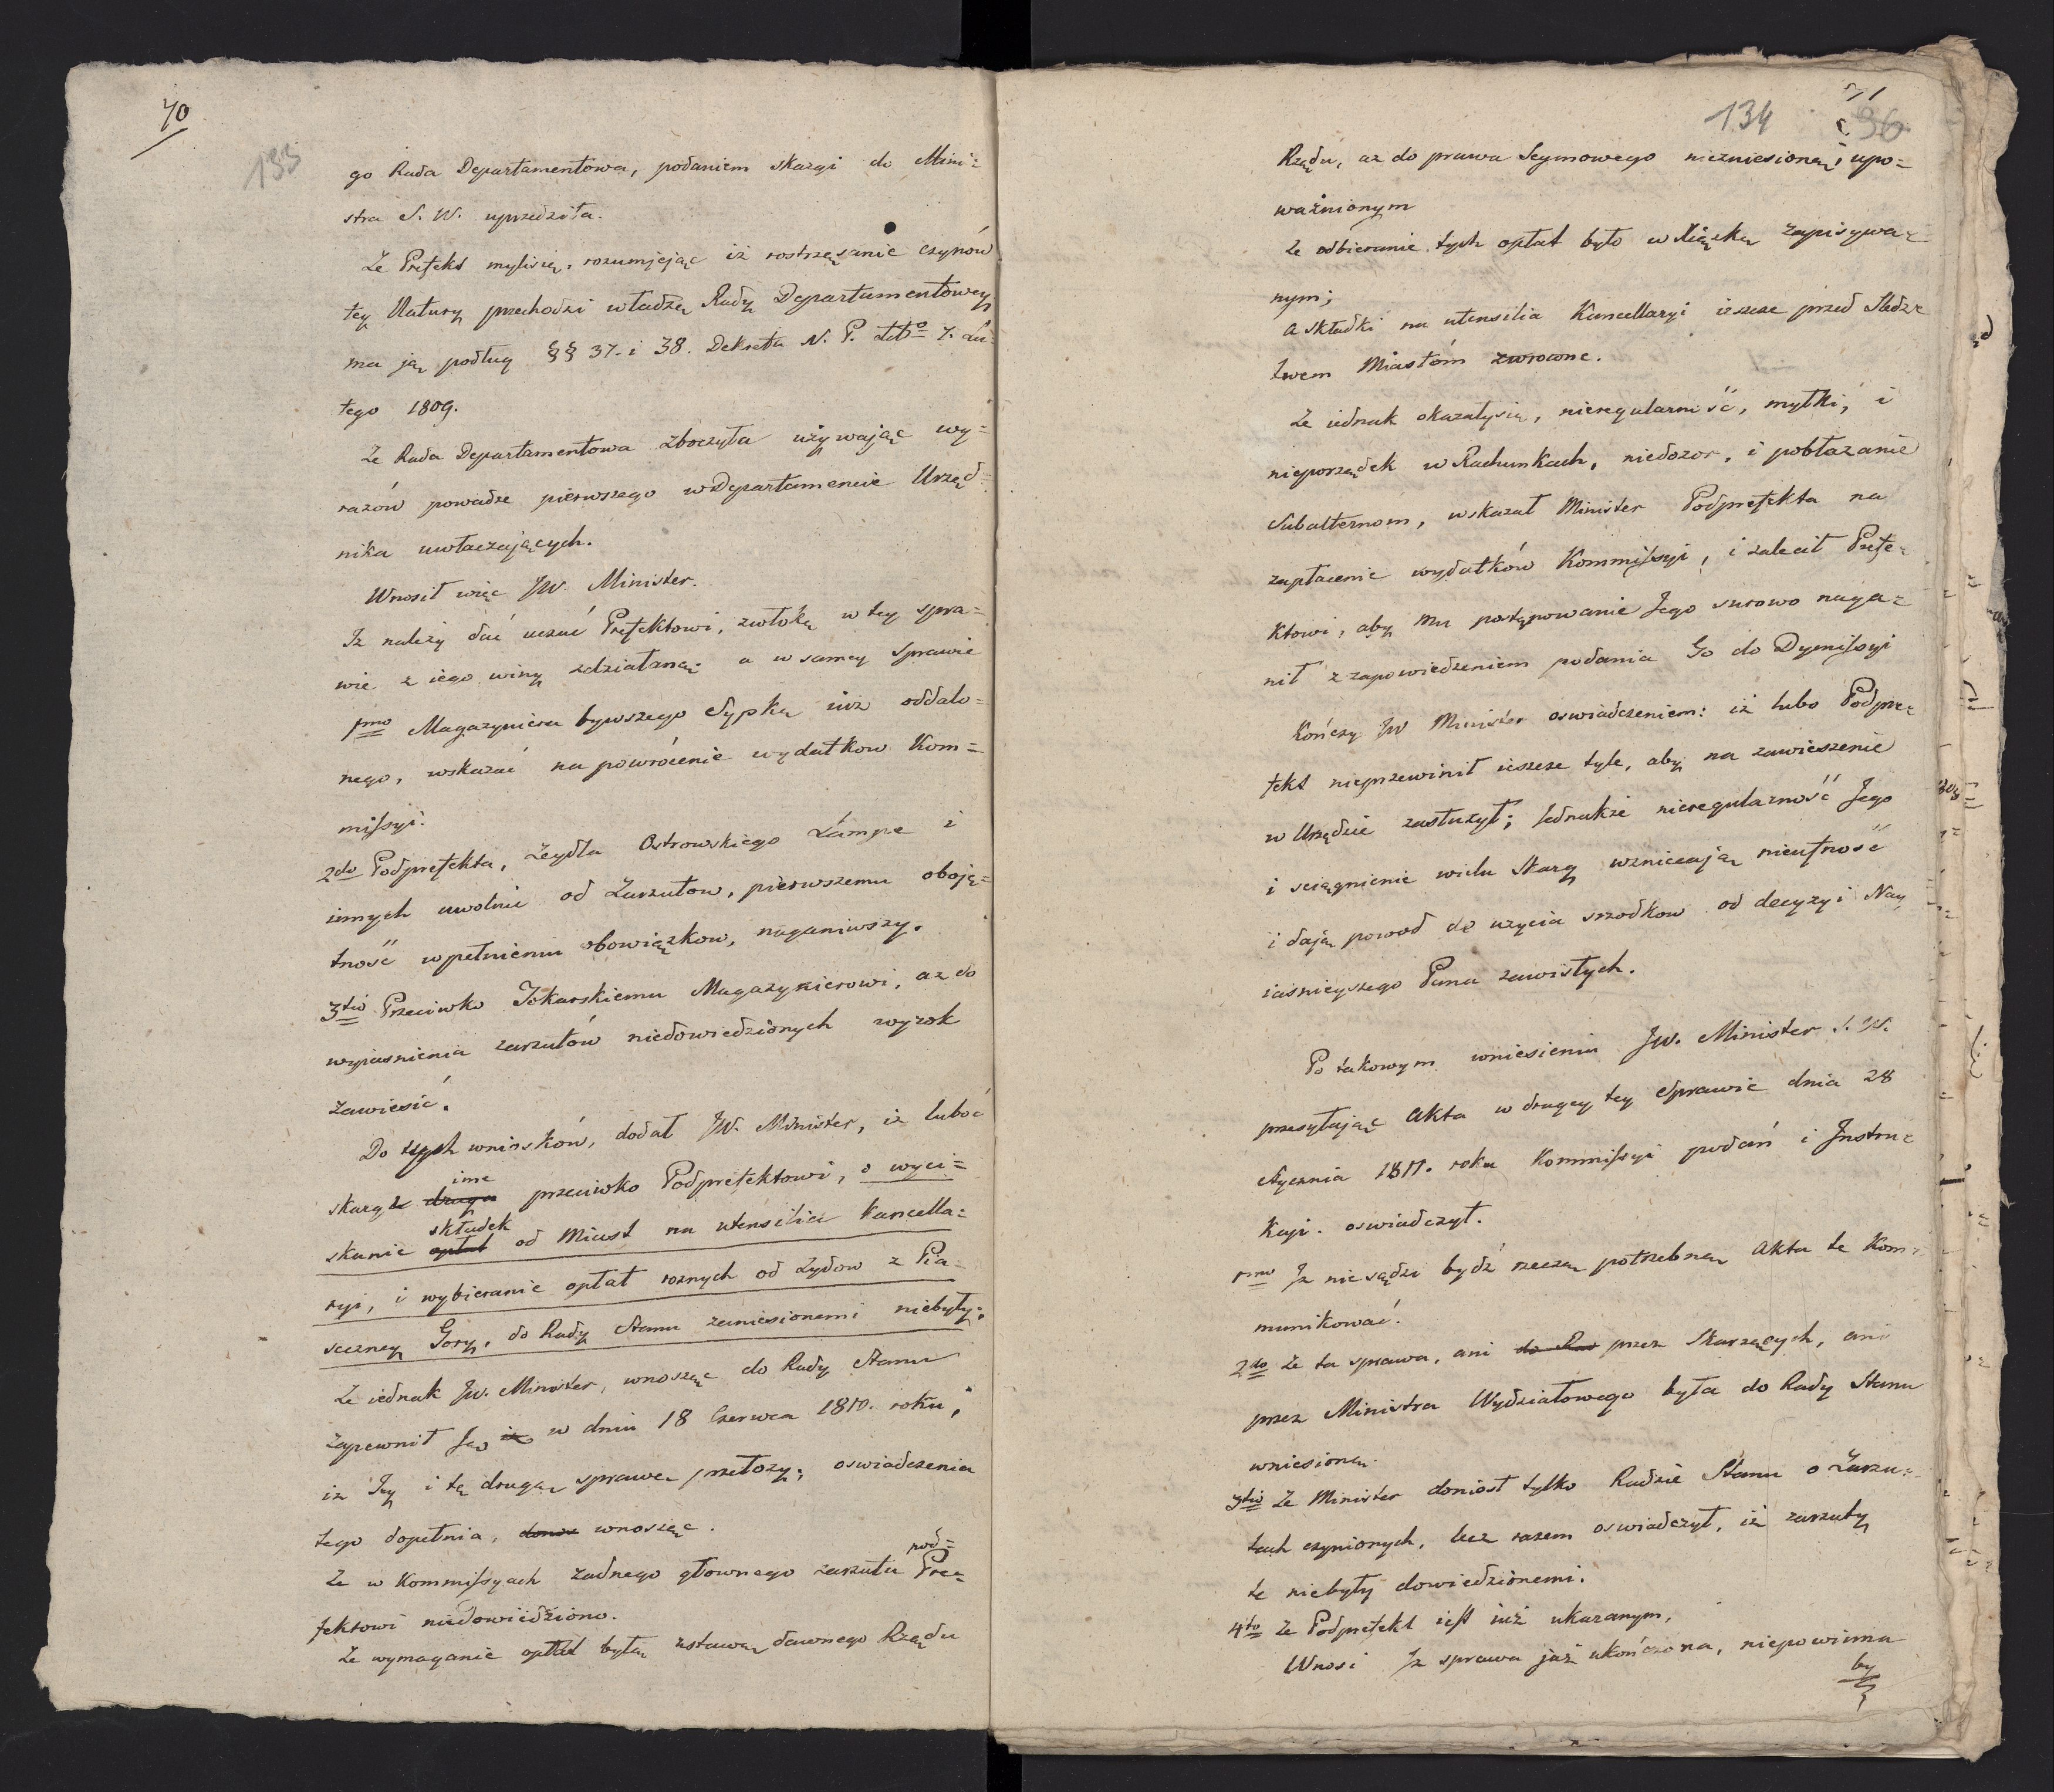 70
133
go Rada Departamentowa, podaniem skargi do Mini=
stra S. W. uprzedziła.
Że Prefekt mylisię, rozumjejąc iż rostrząsanie czynów
tey Natury przechodzi władzę Rady Departamentowey
ma ją podług §§ 37. i 38. Dekretu N. P. ddto 7. Lu=
tego 1809.
Że Rada Departamentowa zboczyła używając wy=
razów powadze pierwszego w Departamencie Urzęd=
nika uwłaczających.
Wnosił więc JW. Minister.
Iż należy dać uczuć Prefektowi, zwłokę w tey spra=
wie z iego winy zdziałaną; a w samey sprawie
1mo Magazyniera bywszego Sypkę iuż oddalo=
nego, wskazać na powrócenie wydatkow Kom=
missyi.
2do Podprefekta, Zeydla Ostrowskiego Lampe i
innych uwolnić od Zarzutow, pierwszemu oboję=
tność w pełnieniu obowiązkow, naganiwszy.
3tio Przeciwko Tokarskiemu Magazynierowi, aż do
wyjasnienia zarzutów niedowiedzionych wyrok
Zawiesić.
Do tych wniosków, dodał JW. Minister, iż luboć
ime
skargi druga przeciwko Podprefektowi, o wyci=
składek
skanie opłat od Miast na utensilia Kancella=
ryi, i wybieranie opłat roznych od Żydow z Pia=
seczney Gory, do Rady Stanu zaniesionemi niebyły;
Że iednak JW. Minister, wnosząc do Rady Stanu
zapewnił Ją iż w dniu 18 Czerwca 1810. roku,
iż Jey i tę drugą sprawę przełoży; oswiadczenia
tego dopełnia, wnosząc.
pod=
Że w Kommissyach żadnego głownego zarzutu Pre=
fektowi niedowiedziono.
Że wymaganie opłat było Ustawą dawnego Rządu
134
71
96
Rządu, aż do prawa Seymowego niezniesioną i upo=
ważnionym
Że odbieranie tych opłat było w Xiążkę zapisywa=
nym;
a składki na utensilia Kancellaryi ieszcze przed Śledz=
twem Miastóm zwrocone.
Że iednak okazałysię, nieregularność, myłki, i
nieporządek w Rachunkach, niedozor, i pobłażanie
Subalternom, wskazał Minister Podprefekta na
zapłacenie wydatków Kommissyi, i zalecił Prefe=
ktowi, aby mu postępowanie Jego surowo naga=
nił z zapowiedzeniem podania Go do Dymissyi
Kończy JW Minister oswiadczeniem: iż lubo Podpre=
fekt nieprzewinił ieszcze tyle, aby na zawieszenie
w Urzędzie zasłużył; Jednakże nieregularność Jego
i sciągnienie wielu Skarg wzniecają nieufność
i dają powod do użycia srzodkow od decyzyi Nay
iasnieyszego Pana zawisłych.
Po takowym wniesieniu JW. Minister S. W.
przesyłając Akta w drugiey tey Sprawie dnia 28
Stycznia 1811. roku Kommissyi podań i Instru=
kcyi. oswiadczył.
1mo Iż nie sądzi bydź rzeczą potrzebną Akta te Kom=
munikować.
2do Że ta sprawa, ani do Rad przez Skarzących, ani
przez Ministra Wydziałowego była do Rady Stanu
wniesioną.
3tio Że Minister doniosł tylko Radzie Stanu o Zarzu=
tach czynionych, lecz razem oswiadczył, iż zarzuty
te niebyły dowiedzionemi.
4to Że Podprefekt iest iuż ukaranym,
Wnosi Iż sprawa już ukończona, niepowinna
by